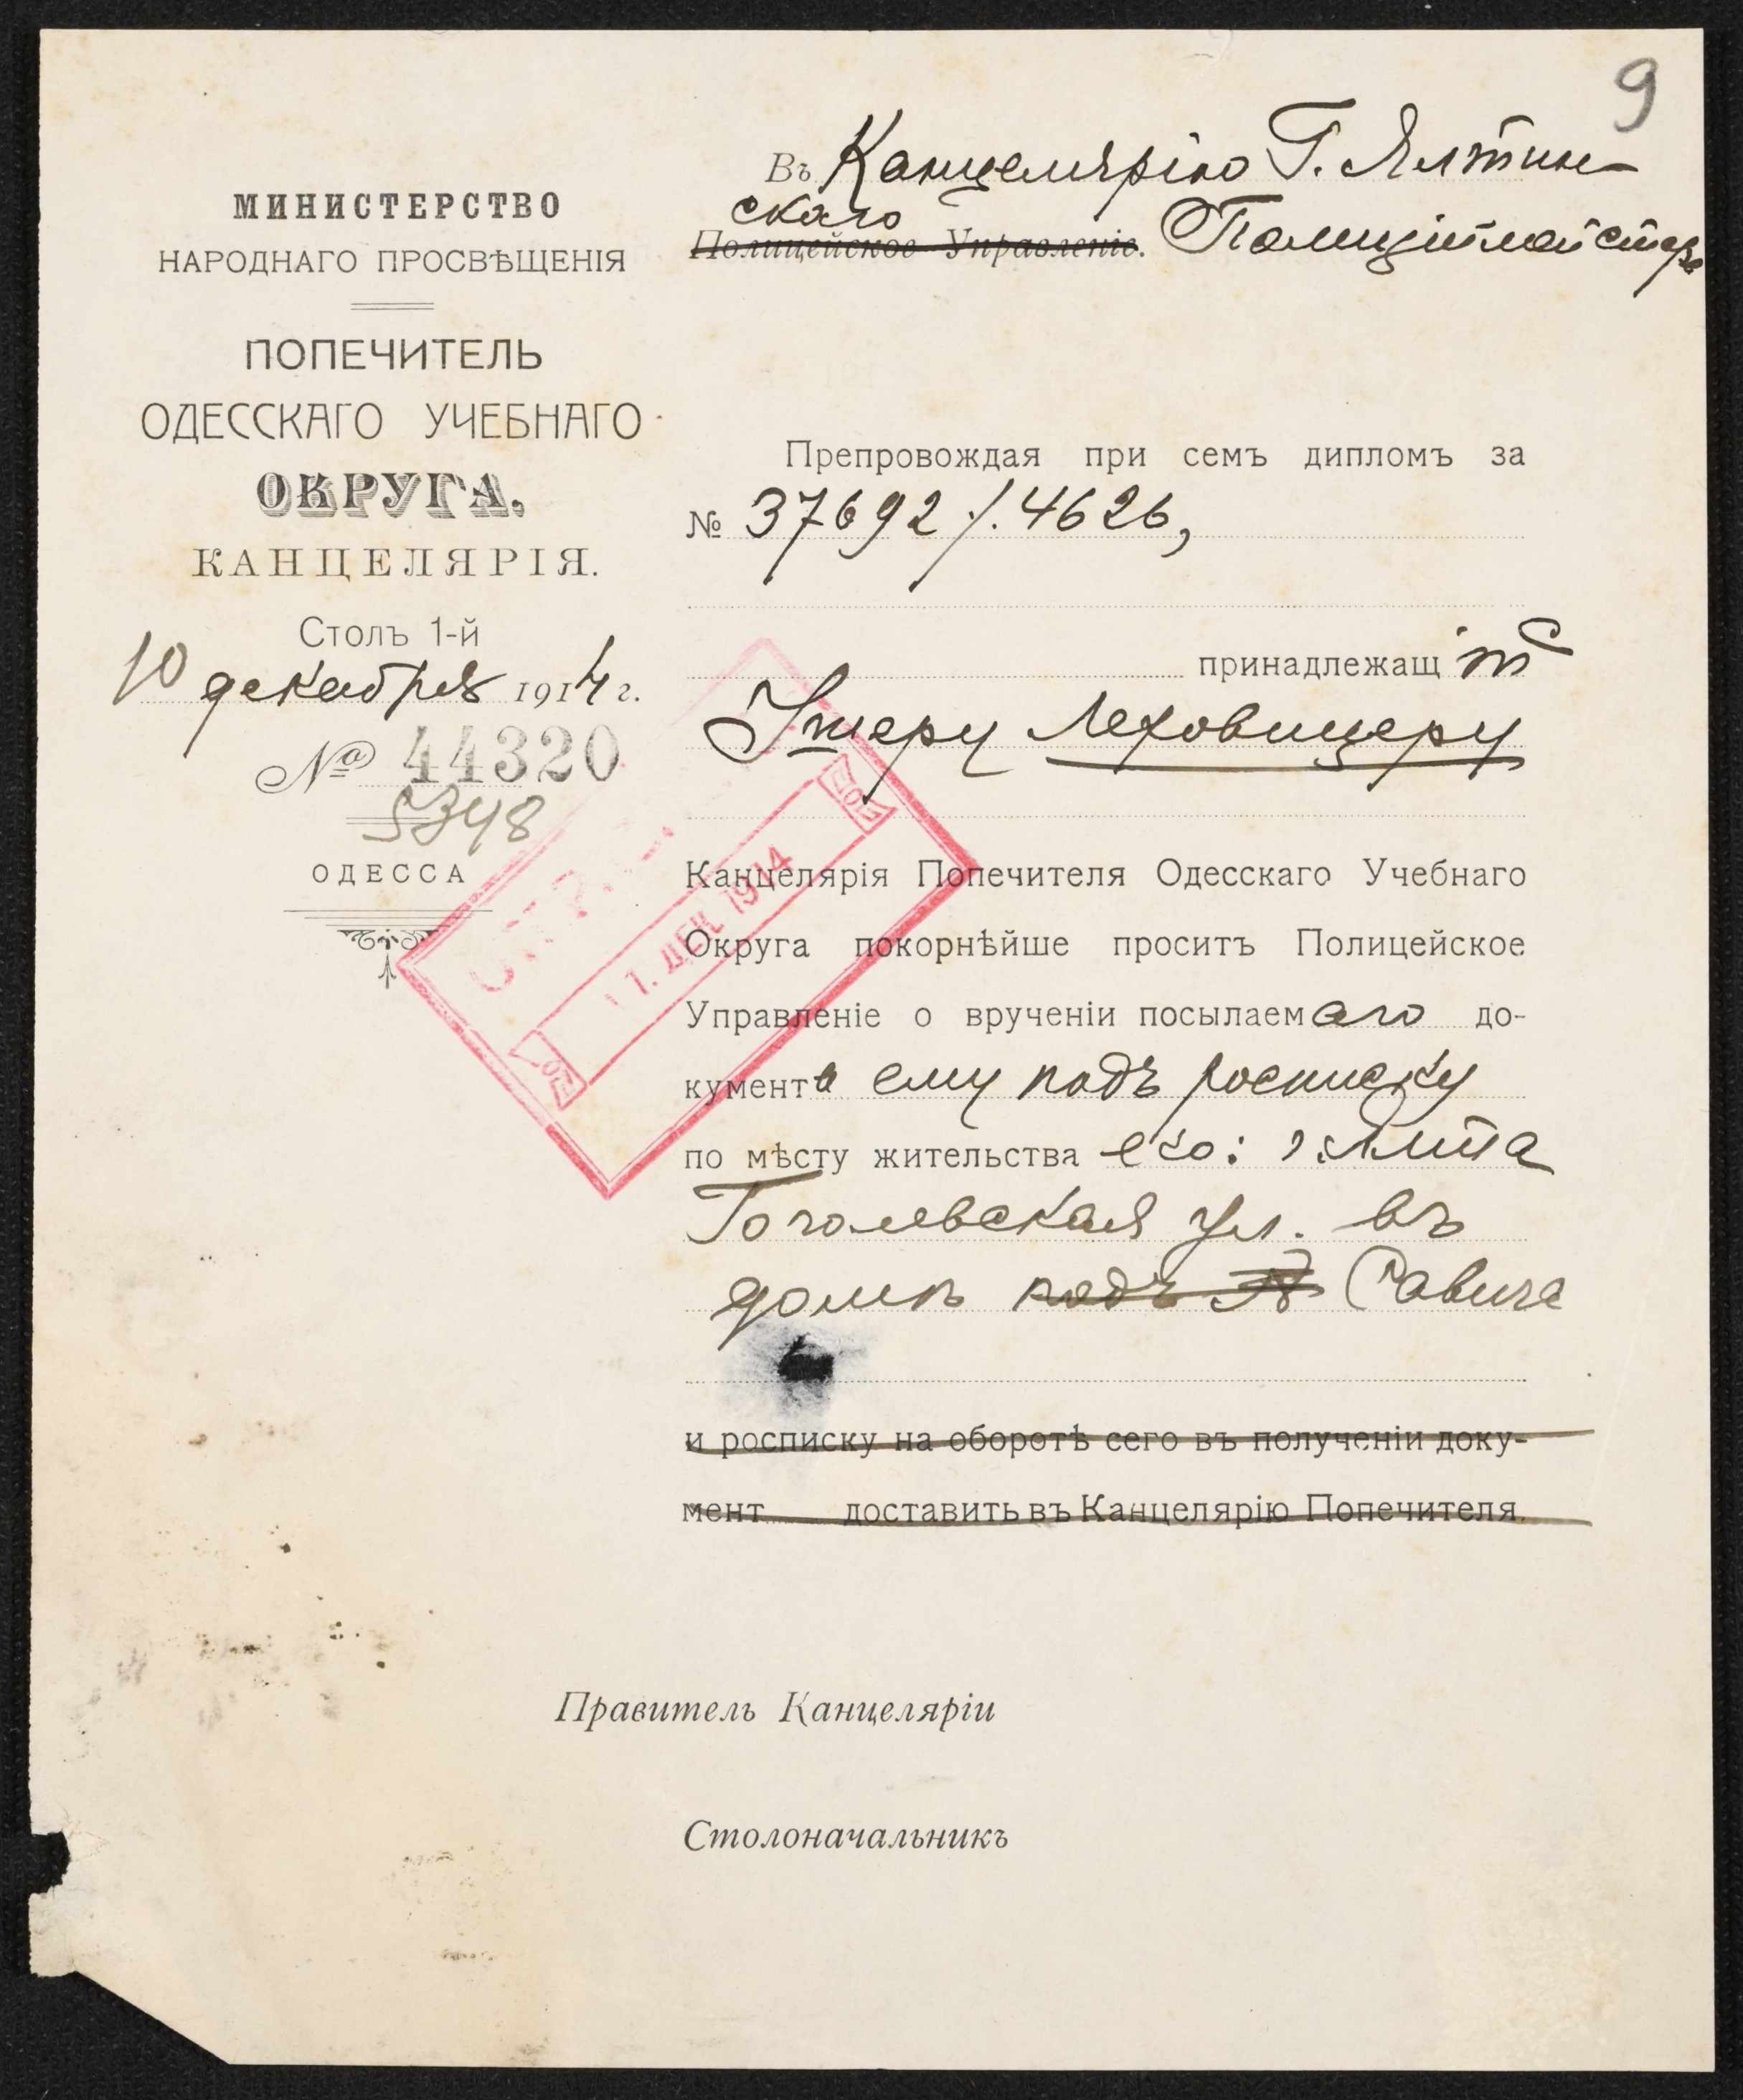 9
Въ Канцелярію Г. Ялтин-
скаго
Полицейское Управленіе. Полиційместра
МИНИСТЕРСТВО
НАРОДНАГО ПРОСВѢЩЕНІЯ
ПОПЕЧИТЕЛЬ
ОДЕССКАГО УЧЕБНАГО
ОКРУГА.
КАНЦЕЛЯРІЯ.
Столъ 1-й
10 декабря 1914 г.
№ 44320
5348
ОДЕССА
Препровождая при семъ дипломъ за
№ 37692/.4626,
принадлежащій
Лековицеру
Канцелярія Попечителя Одесскаго Учебнаго
Округа покорнѣйше проситъ Полицейское
Управленіе о врученіи посылаемаго до-
кумента ему подъ росписку
по мѣсту жительства его: г. Ялта
Гоголевская ул. въ
домѣ подъ № Савича
и росписку на оборотѣ сего въ полученіи доку-
мент доставить въ Канцелярію Попечителя.
Правитель Канцеляріи
Столоначальникъ
1. ДЕК 1914